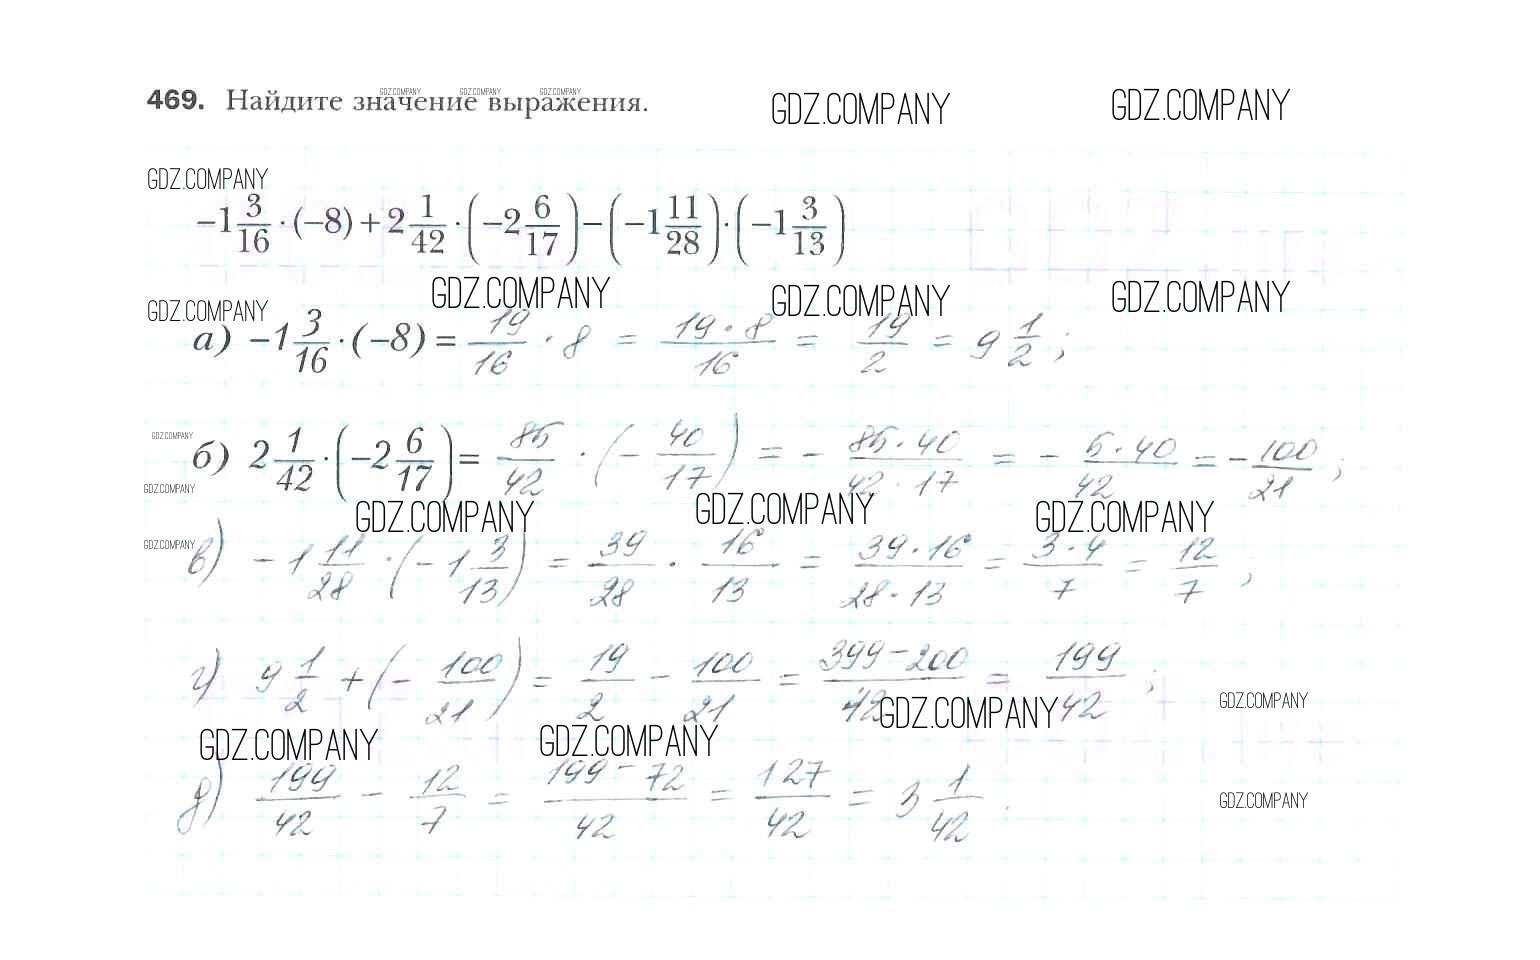 469. Найдите значение выражения.
GDZ.COMPANY GDZ.COMPANY GDZ.COMPANY
GDZ.COMPANY GDZ.COMPANY
GDZ.COMPANY
-1 3/16 · (-8) + 2 1/42 · (-2 6/17) - (-1 11/28) · (-1 3/13)
GDZ.COMPANY GDZ.COMPANY GDZ.COMPANY
GDZ.COMPANY
а) -1 3/16 · (-8) = 19/16 · 8 = 19·8/16 = 19/2 = 9 1/2;
GDZ.COMPANY
б) 2 1/42 · (-2 6/17) = 85/42 · (- 40/17) = - 85·40/42·17 = - 5·40/42 = - 100/21;
GDZ.COMPANY
GDZ.COMPANY GDZ.COMPANY GDZ.COMPANY
GDZ.COMPANY
в) -1 11/28 · (-1 3/13) = 39/28 · 16/13 = 39·16/28·13 = 3·4/7 = 12/7;
г) 9 1/2 + (- 100/21) = 19/2 - 100/21 = 399-200/42 = 199/42;
GDZ.COMPANY GDZ.COMPANY
GDZ.COMPANY GDZ.COMPANY
д) 199/42 - 12/7 = 199-72/42 = 127/42 = 3 1/42.
GDZ.COMPANY